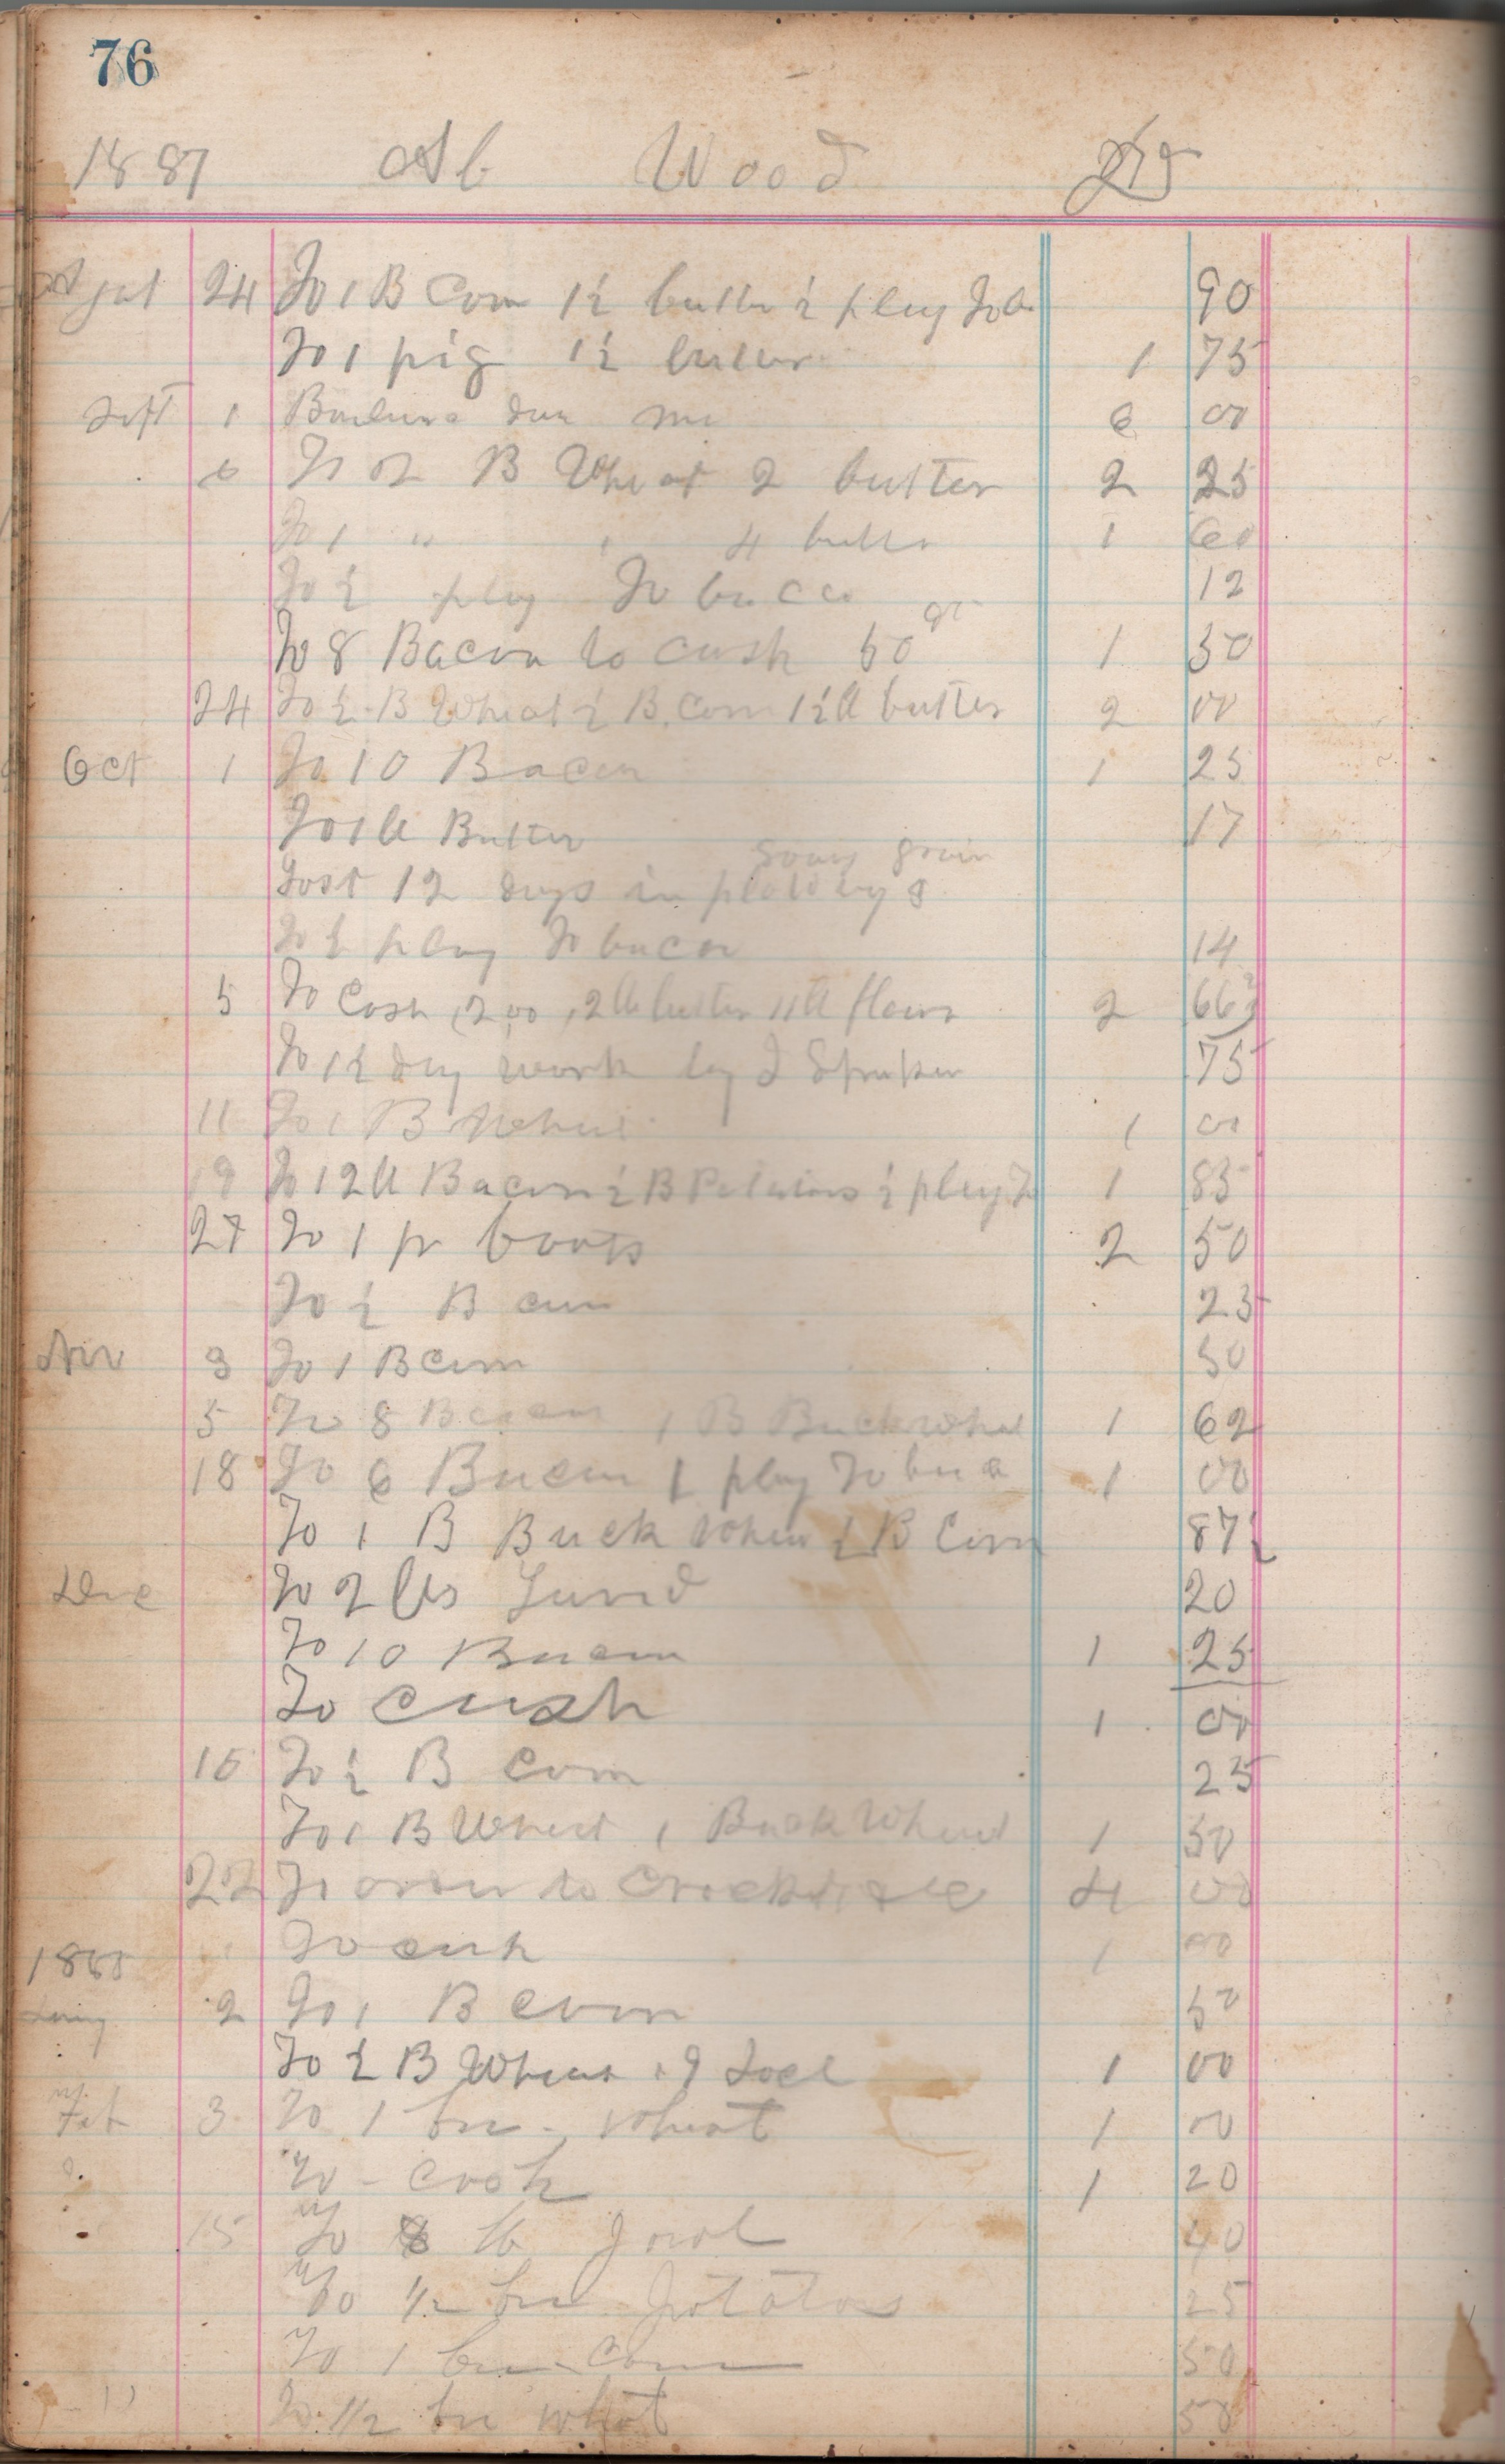 76
1887 Ab Wood Dr
24 To 1 B Corn 1½ butter ½ plug Tob 90
To 1 pig 1½ butter 1 75
Sept 1 due me 6 00
6 To 2 B Wheat 2 butter 2 25
To 1 " " 4 butter 1 60
To ½ plug Tobacco 12
To 8 Bacon to cash 50 cts 1 50
24 To ½ B Wheat ½ B Corn 1½ lb butter 2 00
Oct 1 To 10 Bacon 1 25
To 1 lb Butter 17
Lost 12 days in plowing &
To ½ plug Tobacco 14
5 To Cash 2,00, 2 lb butter 11 lb flour 2 66
To 1½ day work by J 75
11 To 1 B Wheat 1 00
19 To 12 lb Bacon ½ B Potatoes ½ plug T 1 85
27 To 1 pr boots 2 50
To ½ B corn 25
Nov 3 To 1 B corn 50
5 To 8 Bacon 1 B Buckwheat 1 62
18 To 6 Bacon 1 plug Tobaco 1 00
To 1 B Buck Wheat ½ B Corn 87½
Dec To 2 lbs Lard 20
To 10 Bacon 1 25
To cash 1 00
To ½ B Corn 25
To 1 B Wheat 1 Buck Wheat 1 50
22 To order to 4 00
1888 To cash 1 00
2 To 1 B corn 50
To ½ B Wheat 1 00
Feb 3 To 1 bu - wheat 1 00
To - cash 1 20
15 To 8 lb Jowl 40
To ½ bu potatoes 25
To 1 bu - corn 50
To ½ bu wheat 50